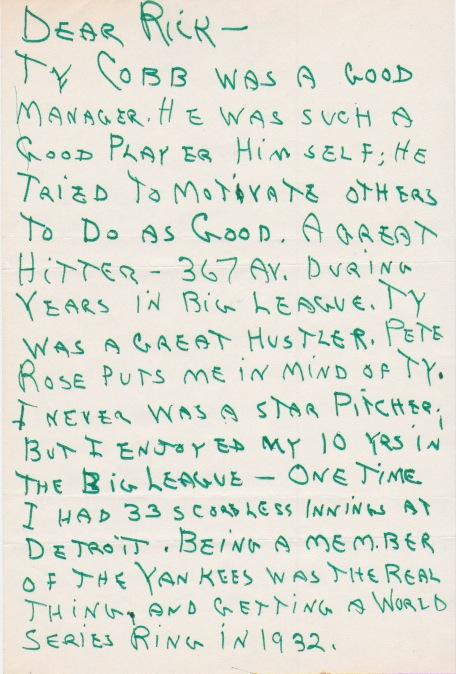 DEAR RICK—
TY COBB WAS A GOOD
MANAGER. HE WAS SUCH A
GOOD PLAYER HIMSELF; HE
TRIED TO MOTIVATE OTHERS
TO DO AS GOOD. A GREAT
HITTER - 367 AV. DURING
YEARS IN BIG LEAGUE. TY
WAS A GREAT HUSTLER. PETE
ROSE PUTS ME IN MIND OF TY.
I NEVER WAS A STAR PITCHER,
BUT I ENJOYED MY 10 YRS IN
THE BIG LEAGUE — ONE TIME
I HAD 33 SCORLESS INNINGS AT
DETROIT. BEING A MEMBER
OF THE YANKEES WAS THE REAL
THING, AND GETTING A WORLD
SERIES RING IN 1932.